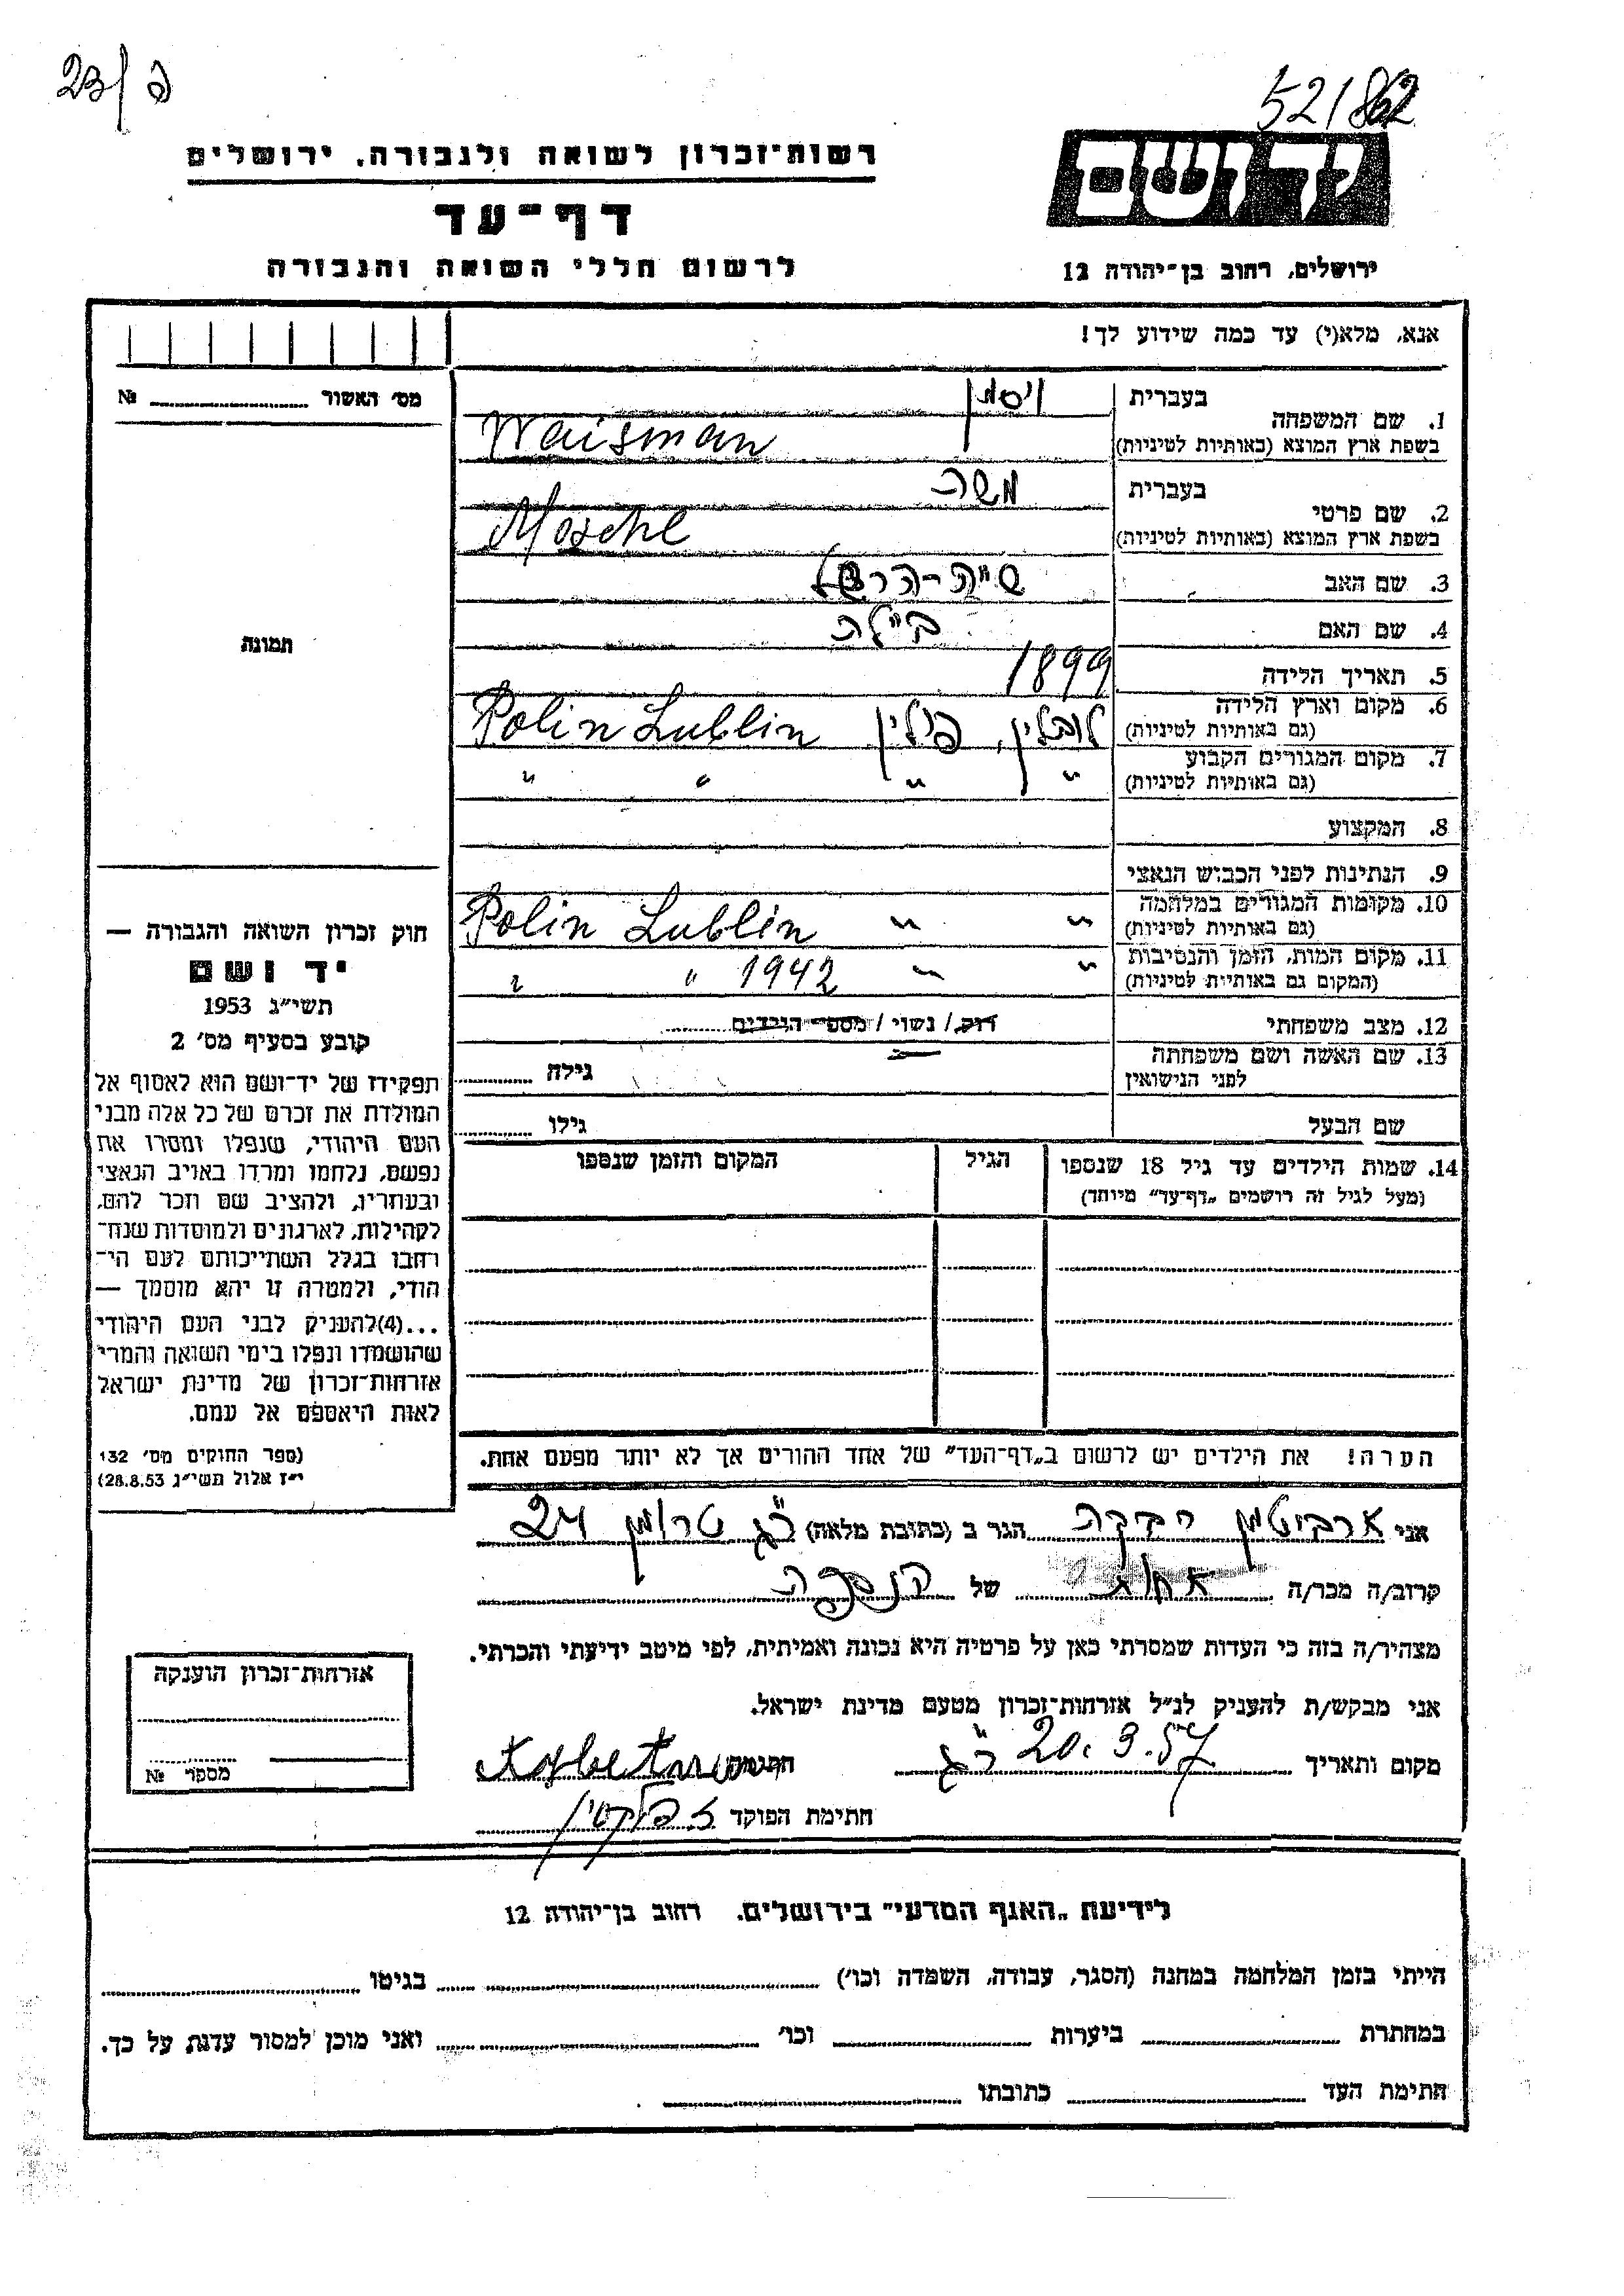 23/ה
52/862
רשות־זכרון לשואה ולגבורה, ירושלים
יד ושם
דף־עד
לרשום חללי השואה והגבורה
ירושלים, רחוב בן־יהודה 12
אנא, מלא(י) עד כמה שידוע לך!
מס׳ האשור № 
1. שם המשפחה בעברית ויסמן
בשפת ארץ המוצא (באותיות לטיניות) Waisman
2. שם פרטי בעברית משה
בשפת ארץ המוצא (באותיות לטיניות) Mosche
3. שם האב
4. שם האם ביילה
5. תאריך הלידה 1899
6. מקום וארץ הלידה לובלין, פולין Polin Lublin
(גם באותיות לטיניות)
7. מקום המגורים הקבוע " " " "
(גם באותיות לטיניות)
8. המקצוע
9. הנתינות לפני הכבוש הנאצי
10. מקומות המגורים במלחמה " " Polin Lublin
(גם באותיות לטיניות)
11. מקום המות, הזמן והנסיבות " " 1942 " "
(המקום גם באותיות לטיניות)
12. מצב משפחתי רוק / נשוי / מספר הילדים
13. שם האשה ושם משפחתה גילה
לפני הנישואין
שם הבעל גילו
14. שמות הילדים עד גיל 18 שנספו הגיל המקום והזמן שנספו
(מעל לגיל זה רושמים „דף־עד" מיוחד)
הערה! את הילדים יש לרשום ב„דף־העד" של אחד ההורים אך לא יותר מפעם אחת.
תמונה
חוק זכרון השואה והגבורה —
יד ושם
תשי״ג 1953
קובע בסעיף מס׳ 2
תפקידו של יד־ושם הוא לאסוף אל
המולדת את זכרם של כל אלה מבני
העם היהודי, שנפלו ומסרו את
נפשם, נלחמו ומרדו באויב הנאצי
ובעוזריו, ולהציב שם וזכר להם,
לקהילות, לארגונים ולמוסדות שנח־
רבו בגלל השתייכותם לעם הי־
הודי, ולמטרה זו יהא מוסמך —
...(4)להעניק לבני העם היהודי
שהושמדו ונפלו בימי השואה והמרי
אזרחות־זכרון של מדינת ישראל
לאות היאספם אל עמם.
(ספר החוקים מס׳ 132
י״ז אלול תשי״ג 28.8.53)
אני ארביטמן רבקה הגר ב (כתובת מלאה) ר״ג טרומן 24
קרוב/ה מכר/ה אחות של הנספה
מצהיר/ה בזה כי העדות שמסרתי כאן על פרטיה היא נכונה ואמיתית, לפי מיטב ידיעתי והכרתי.
אני מבקש/ת להעניק לנ״ל אזרחות־זכרון מטעם מדינת ישראל.
מקום ותאריך ר״ג 20.3.57 חתימה
חתימת הפוקד
אזרחות־זכרון הוענקה
מספר №
לידיעת „האגף המדעי" בירושלים. רחוב בן־יהודה 12
הייתי בזמן המלחמה במחנה (הסגר, עבודה, השמדה וכו׳) בגיטו
במחתרת ביערות וכו׳ ואני מוכן למסור עדות על כך.
חתימת העד כתובתו